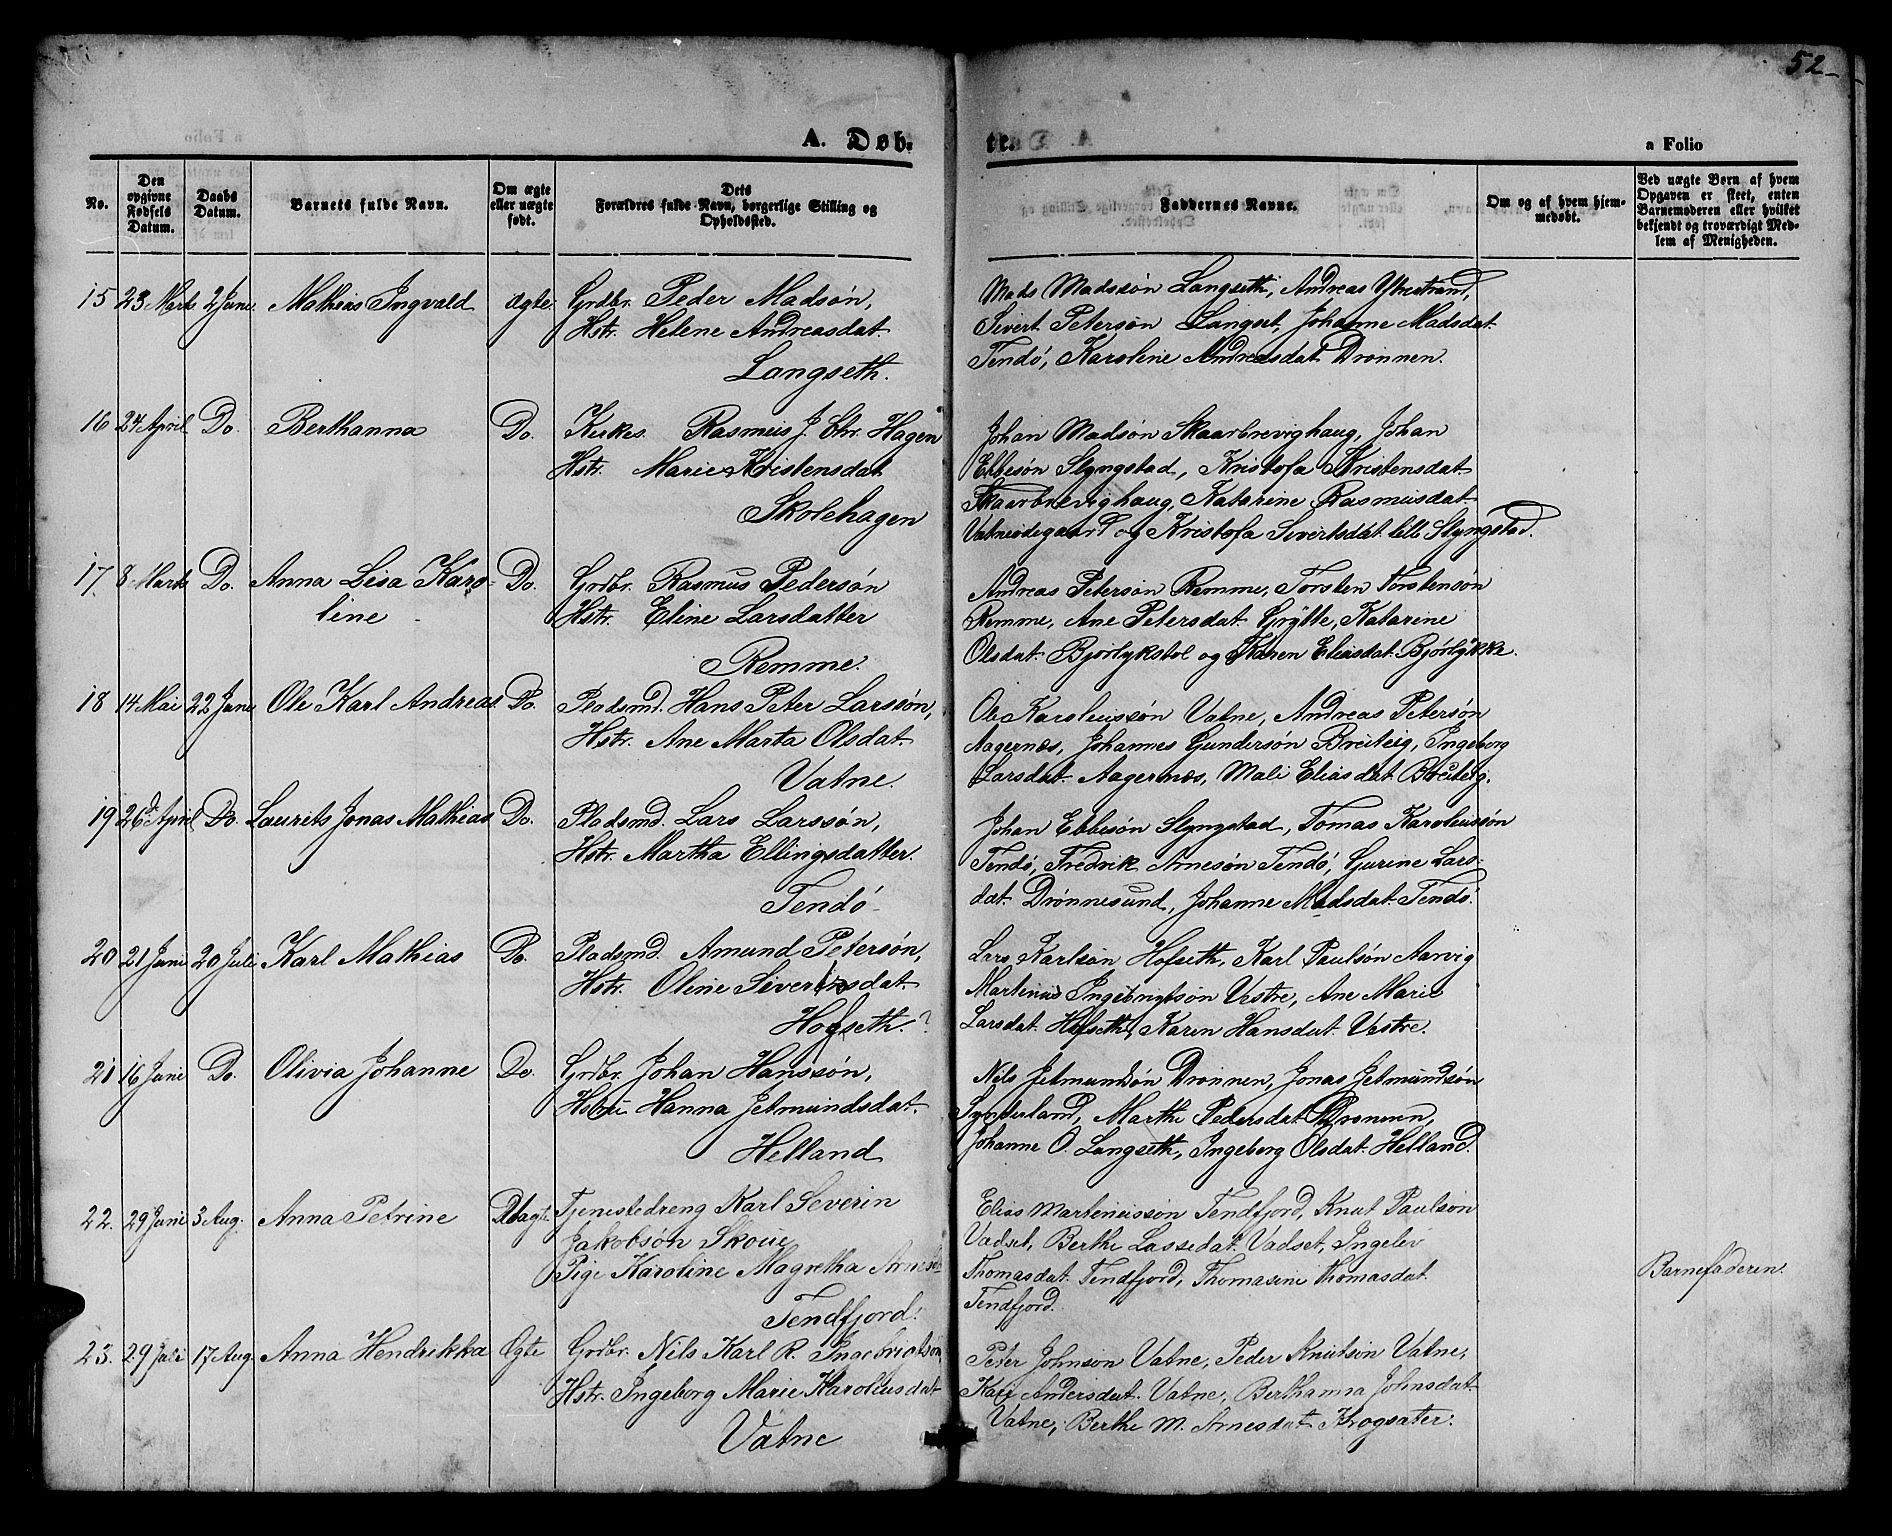 52
A. Døb-
te.
a Folio
No.
Den opgivne Fødsels Datum.
Daabs Datum.
Barnets fulde Navn.
Om ægte eller uægte født.
Dets Forældres fulde Navn, borgerlige Stilling og Opholdssted.
Faddernes Navne.
Om og af hvem hjemmedøbt.
Ved uægte Børn af hvem Opgaven er skeet, enten Barnemoderen eller hvilket bekjendt og troværdigt Medlem af Menigheden.
15 23 Marts 2 Juni Mathias Ingvald ægte Grdbr. Peder Madsøn,
Hstr. Helene Andreasdat.
Langseth.
Mads Madssøn Langseth, Andreas Ytrestrand,
Sivert Petersøn Langset, Johanne Madsdat.
Tendø, Karoline Andreasdat. Drønnen.
16 24 April Do. Berthanna Do. Kirkes. Rasmus J. Chr. Hagen
Hstr. Marie Kristensdat.
Skolehagen
Johan Madsøn Skaarbrevighaug, Johan
Ebbesøn Slyngstad, Kristofa Kristensdat.
Skaarbrevighaug, Katarine Rasmusdat.
Vatneødegaard og Kristofa Sivertsdat. lille Slyngstad.
17. 8 Marts Do. Anna Lisa Karo-
line Do. Grdbr. Rasmus Pedersøn
Hstr. Eline Larsdatter
Remme.
Andreas Petersøn Remme, Torsten Torstensøn
Remme, Ane Petersdat. Grytte, Katarine
Olsdat. Bjørlykstøl og Karen Eliasdat. Bjørlykke.
18 14 Mai 22 Juni Ole Karl Andreas Do. Pladsmd. Hans Peter Larssøn,
Hstr. Ane Marta Olsdat.
Vatne.
Ole Karoleussøn Vatne, Andreas Petersøn
Aagernæs, Johannes Gundersøn Breiteig, Ingeborg
Larsdat. Aagernæs, Mali Eliasdat. Breiteig.
19 26 April Do. Laurits Jonas Mathias Do. Pladsmd. Lars Larssøn,
Hstr. Martha Ellingsdatter.
Tendø
Johan Ebbesøn Slyngstad, Tomas Karoleussøn
Tendø, Fredrik Arnesøn Tendø, Gurine Lars-
dat. Drønnesund, Johanne Madsdat. Tendø.
20 21 Juni 20 Juli Karl Mathias Do. Pladsmd. Amund Petersøn,
Hstr. Oline Siverinsdat.
Hofseth.?
Lars Karlsøn Hofseth, Karl Paulsøn Aarvig
Martenus Ingebrigtsøn Vestre, Ane Marie
Larsdat. Hofseth, Karen Hansdat. Vestre.
21 16 Juni Do. Olivia Johanne Do. Grdbr. Johan Hanssøn,
Hstru Hanna Jetmundsdat.
Helland
Nils Jetmundsøn Drønnen, Jonas Jetmundsøn
Synderland, Marthe Pedersdat. Drønnen,
Johanne O. Langseth, Ingeborg Olsdat. Helland.
22. 29 Juni 3 Aug. Anna Petrine Uægte Tjenestedreng Karl Severin
Jakobsøn Skoue
Pige Karoline Magretha Arnesd.
Tendfjord.
Elias Martenussøn Tendfjord, Knut Paulsøn
Vadset, Berthe Lassedat. Vadset, Ingelev
Thomasdat. Tendfjord, Thomasine Thomasdat.
Tendfjord.
Barnefaderen.
23. 29 Juli 17 Aug. Anna Hendrikka Ægte Grdbr. Nils Karl R. Ingebrigtsøn
Hstr. Ingeborg Marie Karoliusdat.
Vatne
Peter Johnsøn Vatne, Peder Knutsøn Vatne,
Kari Andersdat. Vatne, Berthanna Johnsdat.
Vatne, Berthe M. Arnesdat. Krogsæter.